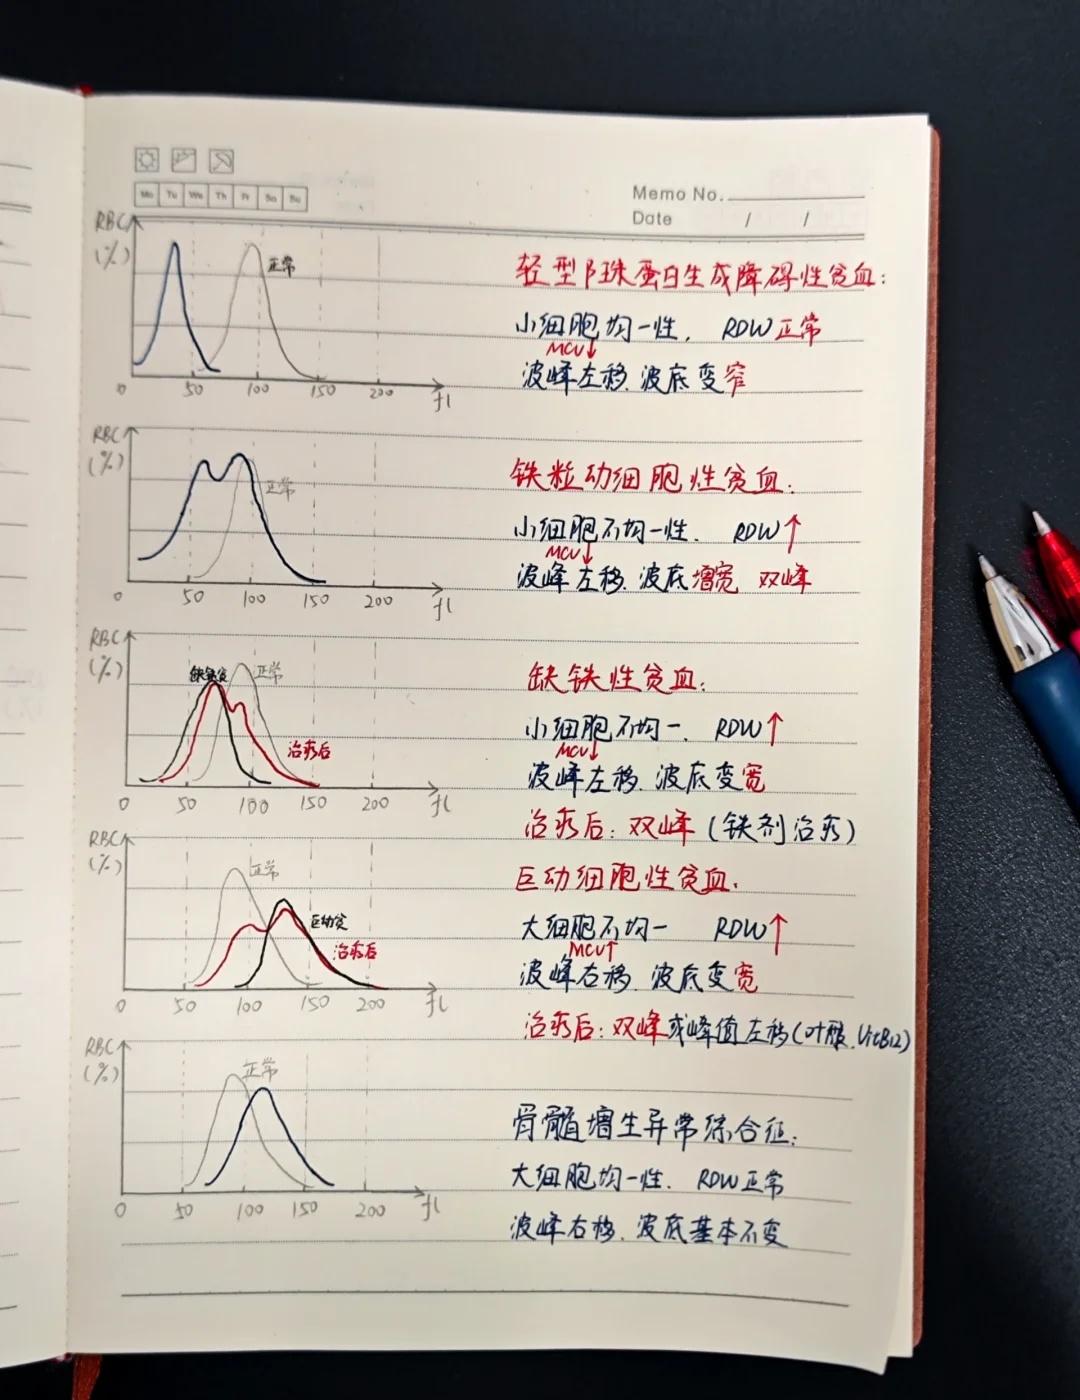 Mo Tu We Th Fr Sa Su
Memo No.
Date / /
RBC
(%)
正常
0 50 100 150 200 fl
轻型β珠蛋白生成障碍性贫血:
小细胞均一性, RDW正常
MCV↓
波峰左移.波底变窄
RBC
(%)
正常
0 50 100 150 200 fl
铁粒幼细胞性贫血:
小细胞不均一性. RDW↑
MCV↓
波峰左移.波底增宽 双峰
RBC
(%)
缺铁贫
正常
治疗后
0 50 100 150 200 fl
缺铁性贫血:
小细胞不均一. RDW↑
MCV↓
波峰左移.波底变宽
治疗后:双峰(铁剂治疗)
RBC
(%)
正常
巨幼贫
治疗后
0 50 100 150 200 fl
巨幼细胞性贫血.
大细胞不均一 RDW↑
MCV↑
波峰右移.波底变宽
治疗后:双峰或峰值左移(叶酸.VitB12)
RBC
(%)
正常
0 50 100 150 200 fl
骨髓增生异常综合征:
大细胞均一性. RDW正常
波峰右移.波底基本不变